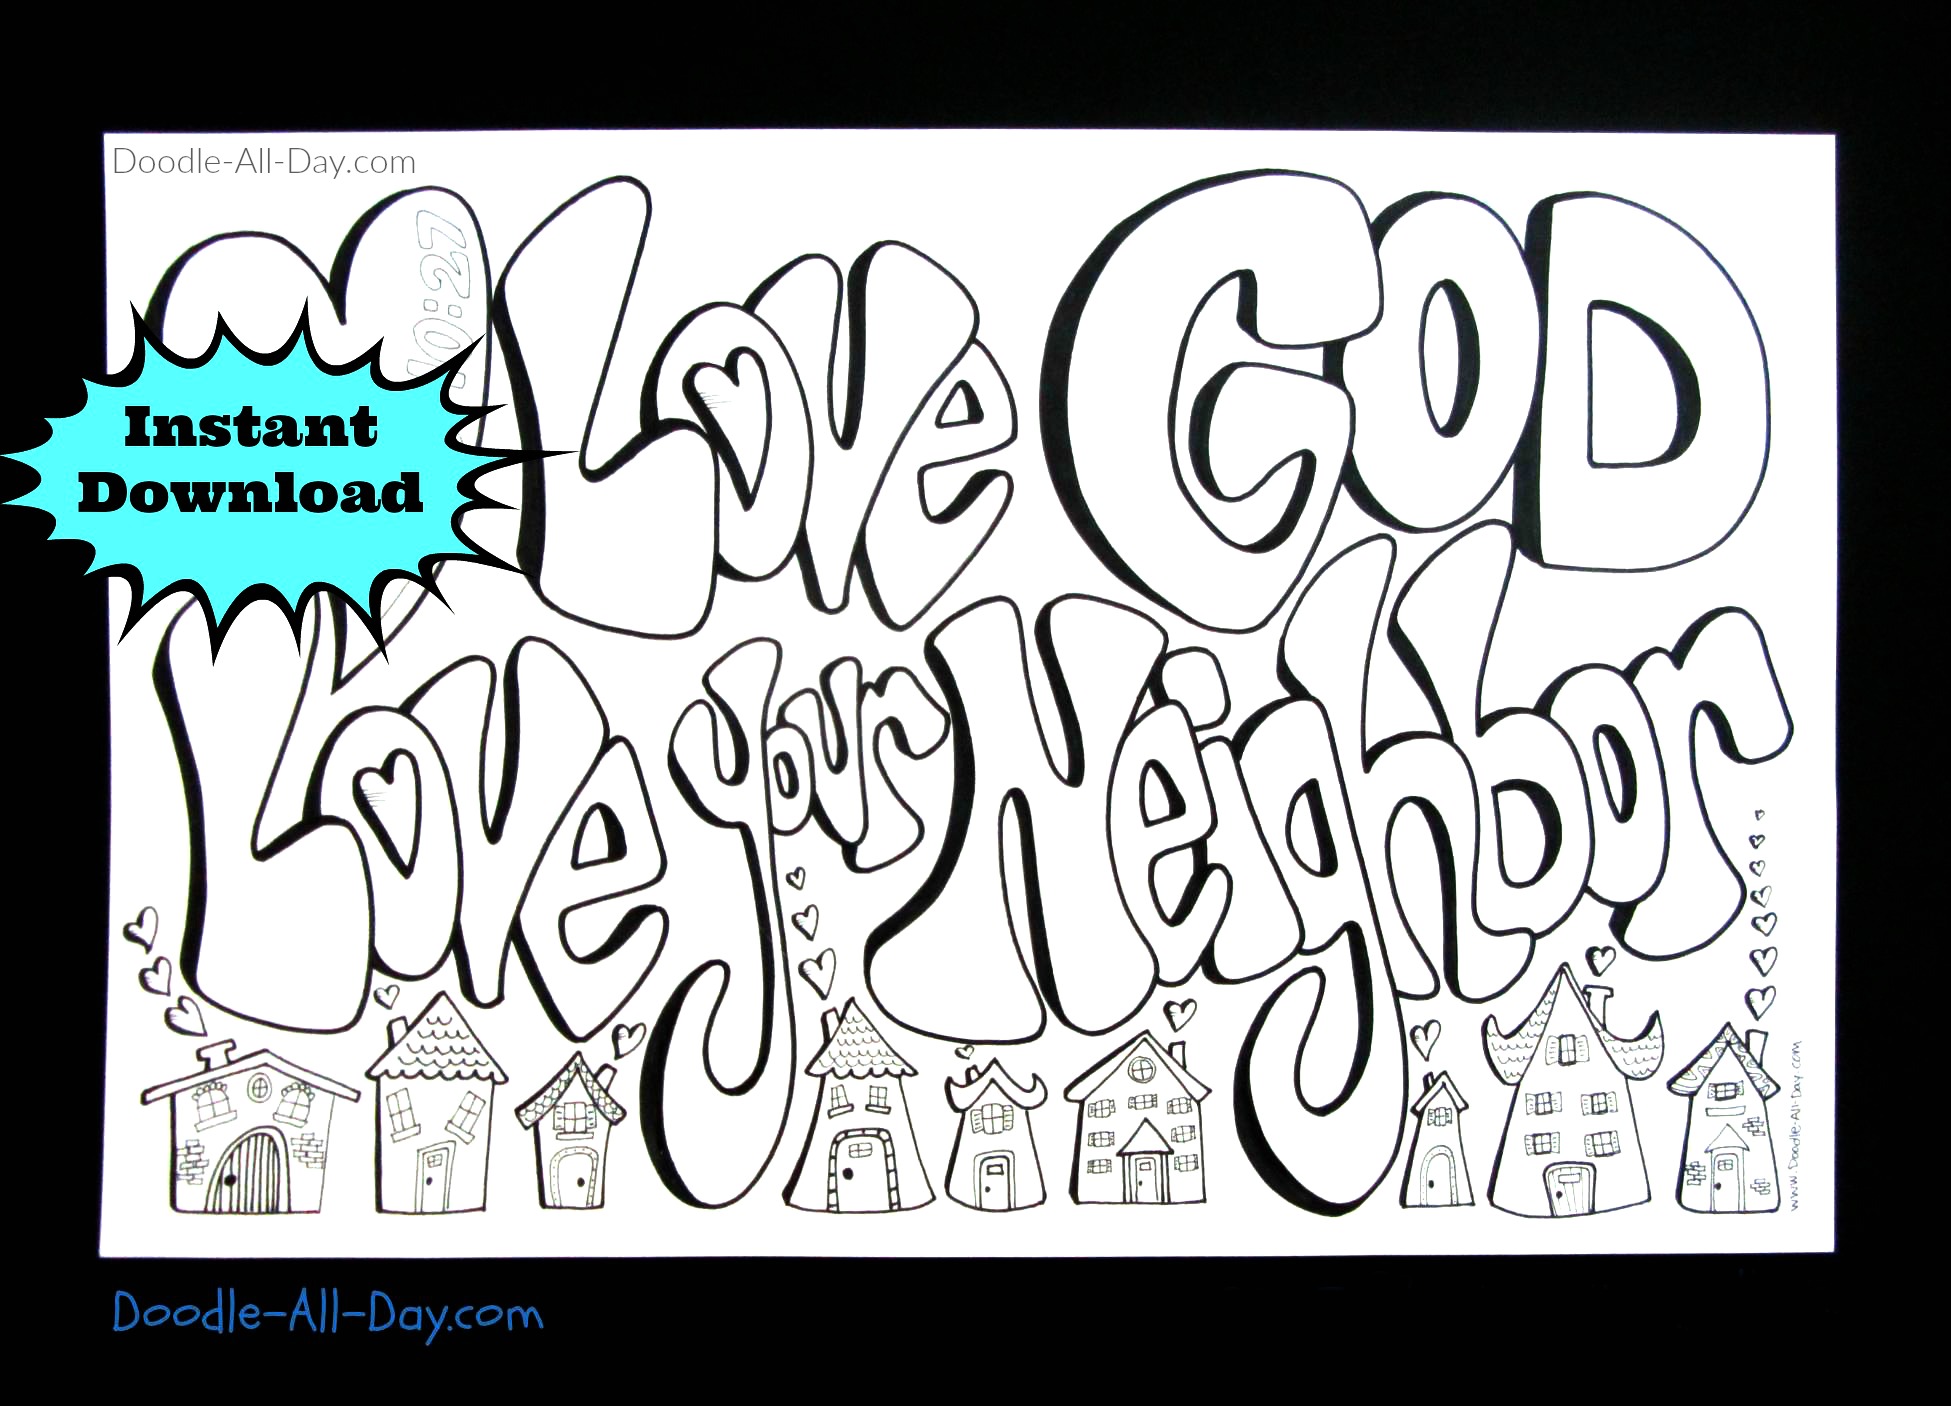 Doodle-All-Day.com
10:27
Love GOD
Instant
Download
Love your Neighbor
www.Doodle-All-Day.com
Doodle-All-Day.com